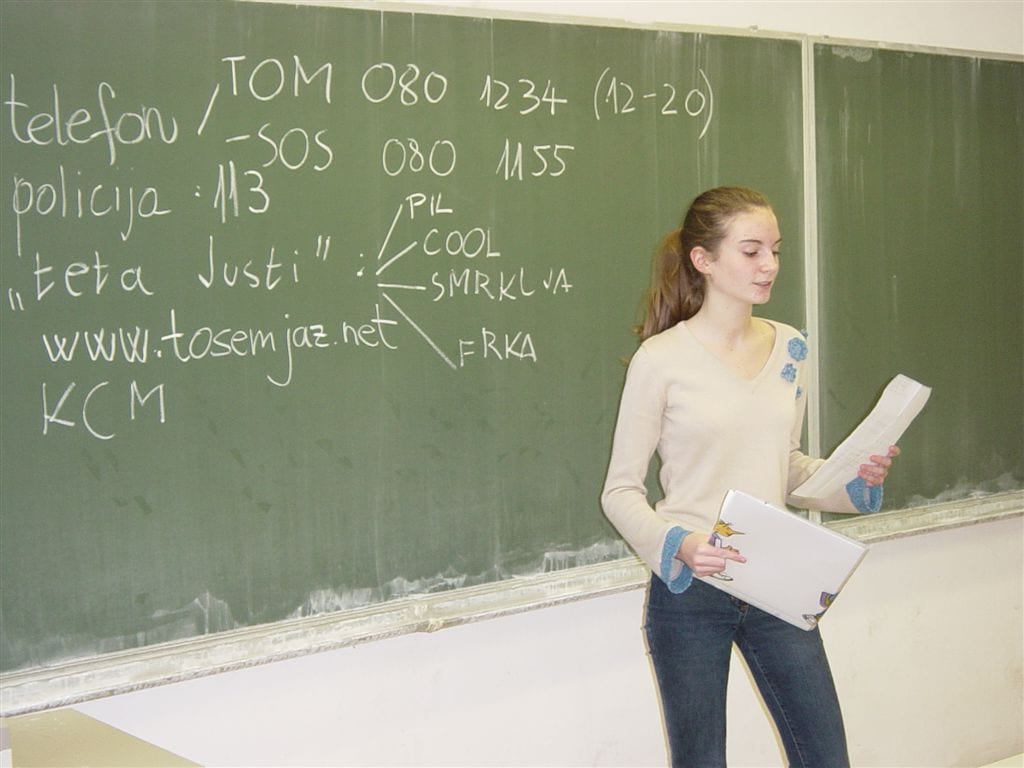 telefon / TOM 080 1234 (12-20)
- SOS 080 1155
policija : 113
„teta Justi” :
PIL
COOL
SMRKLJA
FRKA
www.tosemjaz.net
KCM